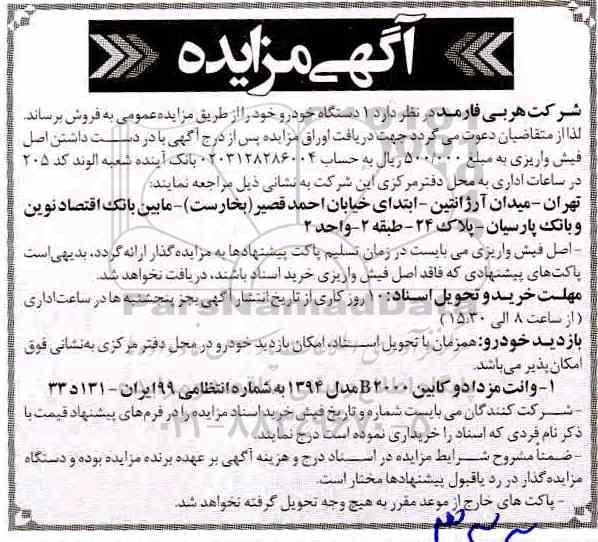 آگهی مزایده
شرکت هربی فارمد در نظر دارد ۱ دستگاه خودرو خود را از طریق مزایده عمومی به فروش برساند.
لذا از متقاضیان دعوت می گردد جهت دریافت اوراق مزایده پس از درج آگهی با در دست داشتن اصل
فیش واریزی به مبلغ ۵۰۰/۰۰۰ ریال به حساب ۰۲۰۳۱۲۸۲۸۶۰۰۴ بانک آینده شعبه الوند کد ۲۰۵
در ساعات اداری به محل دفتر مرکزی این شرکت به نشانی ذیل مراجعه نمایند:
تهران - میدان آرژانتین - ابتدای خیابان احمد قصیر (بخارست) - مابین بانک اقتصاد نوین
و بانک پارسیان - پلاک ۲۴ - طبقه ۲ - واحد ۲
- اصل فیش واریزی می بایست در زمان تسلیم پاکت پیشنهادها به مزایده گذار ارائه گردد، بدیهی است
پاکت های پیشنهادی که فاقد اصل فیش واریزی خرید اسناد باشند، دریافت نخواهد شد.
مهلت خرید و تحویل اسناد: ۱۰ روز کاری از تاریخ انتشار آگهی بجز پنجشنبه ها در ساعت اداری
(از ساعت ۸ الی ۱۵:۳۰)
بازدید خودرو: همزمان با تحویل اسناد، امکان بازدید خودرو در محل دفتر مرکزی به نشانی فوق
امکان پذیر می باشد.
۱- وانت مزدا دو کابین B۲۰۰۰ مدل ۱۳۹۴ به شماره انتظامی ۹۹ ایران - ۱۳۱ د ۳۳
- شرکت کنندگان می بایست شماره و تاریخ فیش خرید اسناد مزایده را در فرم های پیشنهاد قیمت با
ذکر نام فردی که اسناد را خریداری نموده است درج نمایند.
- ضمنا مشروح شرایط مزایده در اسناد درج و هزینه آگهی بر عهده برنده مزایده بوده و دستگاه
مزایده گذار در رد یا قبول پیشنهادها مختار است.
- پاکت های خارج از موعد مقرر به هیچ وجه تحویل گرفته نخواهد شد.
ParsNamadData
۰۲۱-۸۸۳۴۹۶۷۰-۵